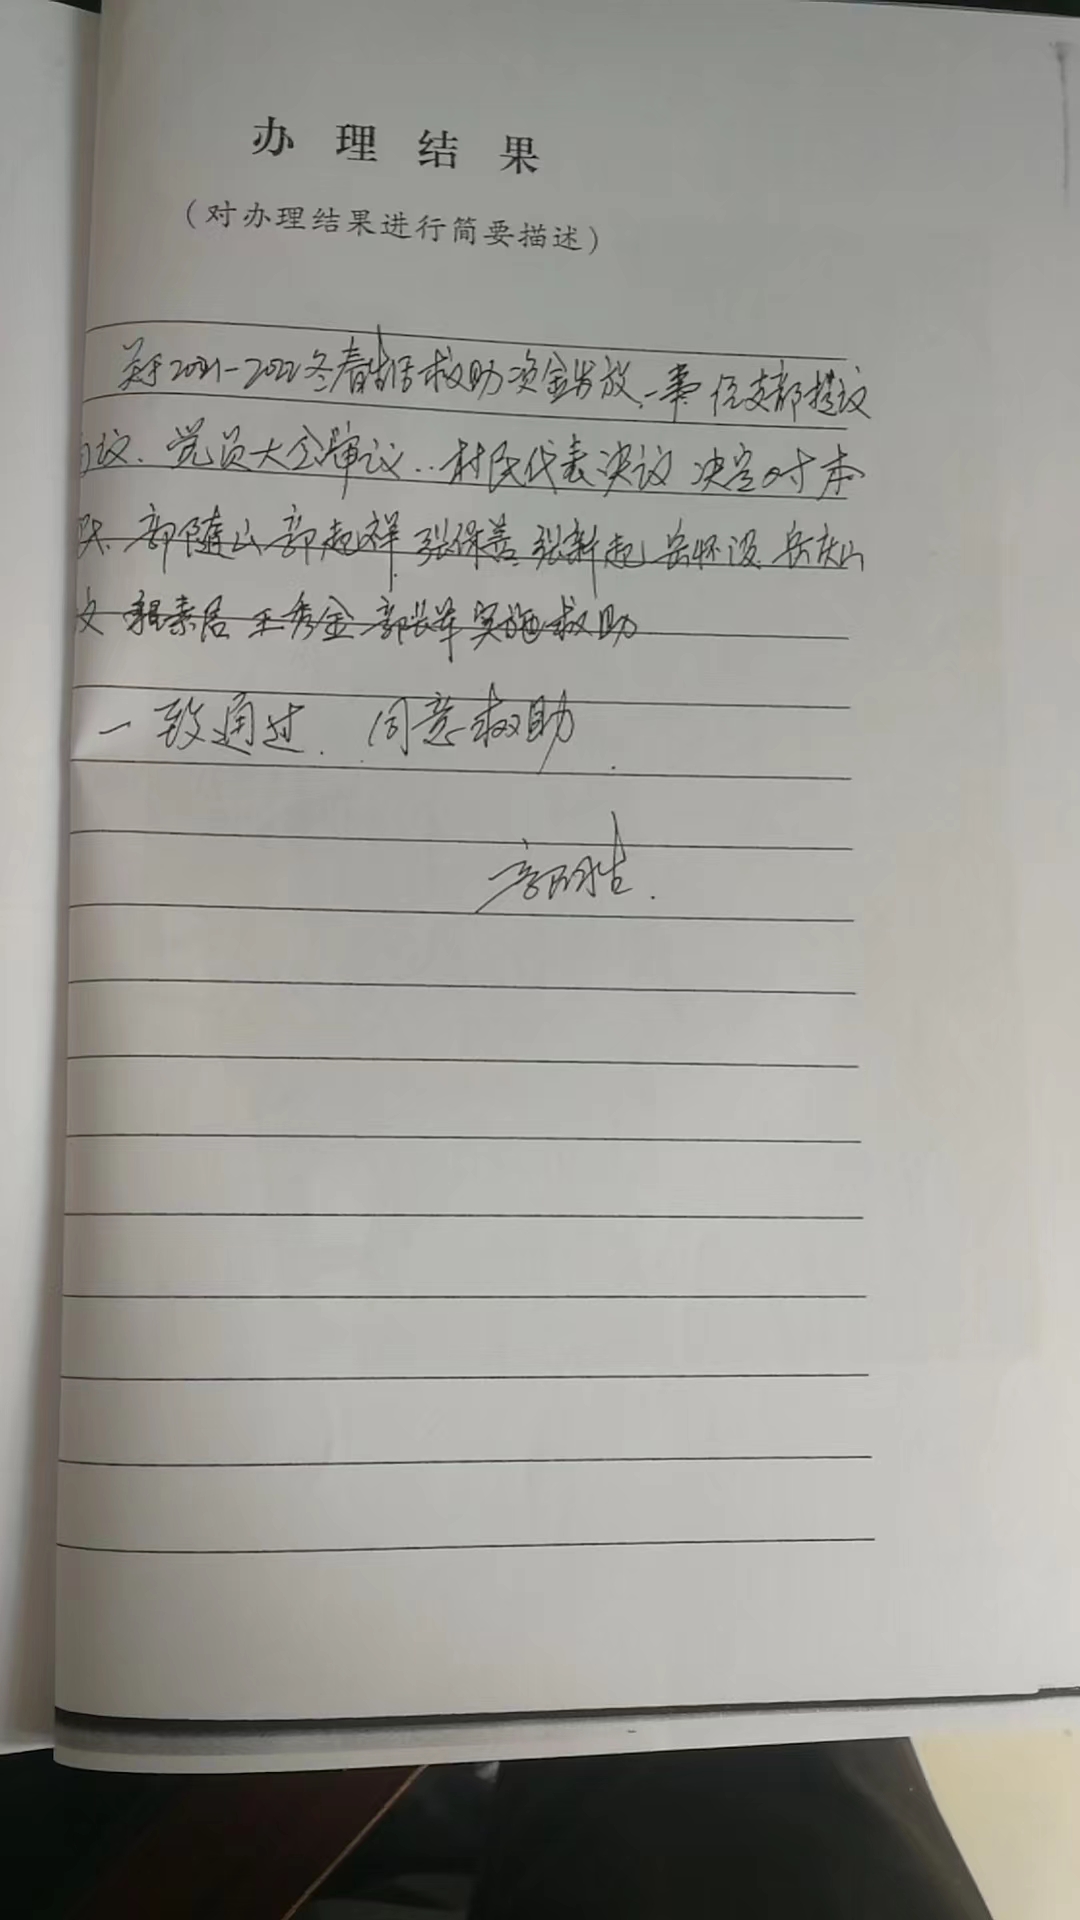 办理结果
（对办理结果进行简要描述）
关于2021-2022冬春生活救助资金发放一事 经支部提议
议. 党员大会审议.. 村民代表决议 决定对本
郭随山 郭起祥 张保善 张新起 岳怀 岳庆山
程素居 王秀金 郭长军 实施救助
一致通过. 同意救助.